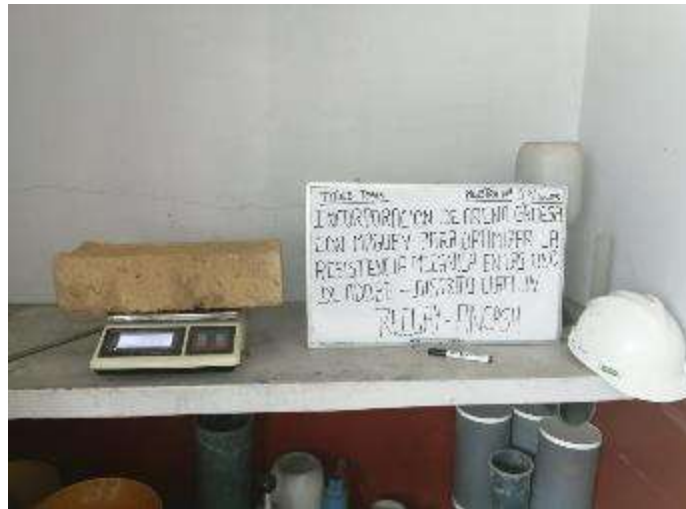 INCORPORACION DE ARENA GRUESA
CON MAGUEY PARA OPTIMIZAR LA
RESISTENCIA MECANICA EN LAS UND
DE ADOBE - DISTRITO
- ANCASH